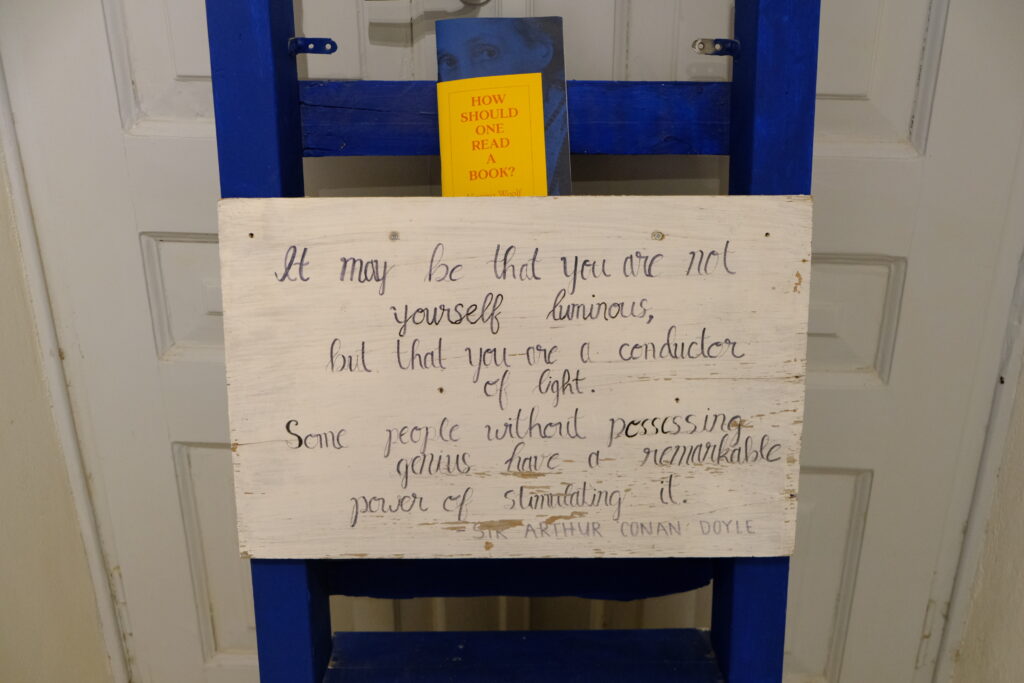 HOW
SHOULD
ONE
READ
A
BOOK?
Woolf
It may be that you are not
yourself luminous,
but that you are a conductor
of light.
Some people without possessing
genius have a remarkable
power of stimulating it.
SIR ARTHUR CONAN DOYLE